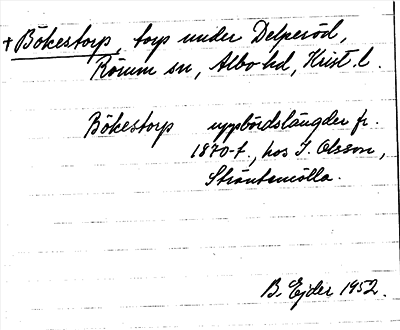 + Bökestorp, torp under Delperöd,
Rörum sn, Albo hd, Krist. l.
Bökestorp uppbördslängder fr.
1870-t., hos J. Olsson,
Sträntemölla.
B. Ejder 1952.